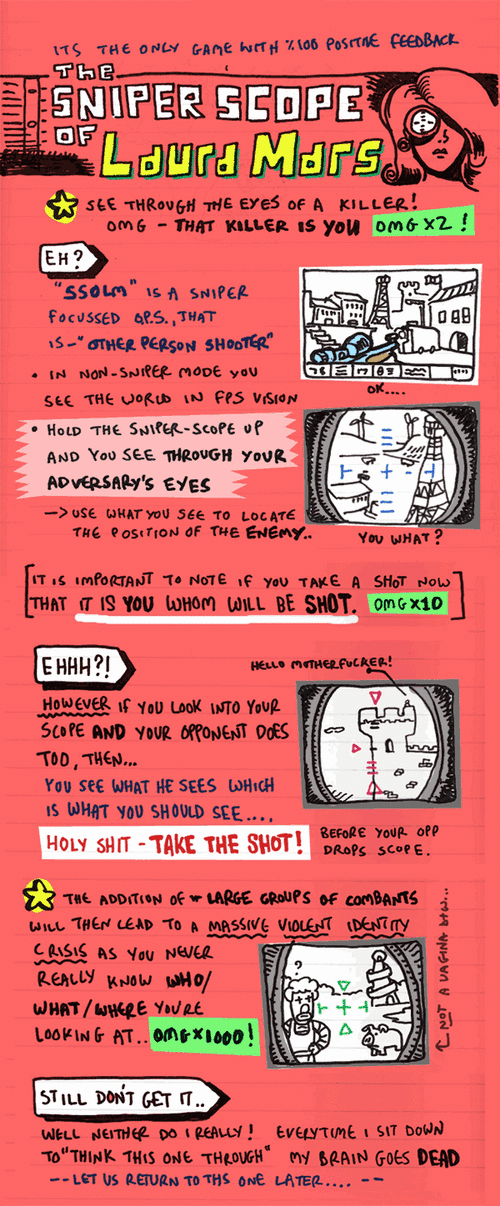 ITS THE ONLY GAME WITH %100 POSITIVE FEEDBACK
The
SNIPER SCOPE
OF Laura Mars
SEE THROUGH THE EYES OF A KILLER!
OMG - THAT KILLER IS YOU OMG X2!
EH?
"SSOLM" IS A SNIPER
FOCUSSED O.P.S., THAT
IS-"OTHER PERSON SHOOTER"
• IN NON-SNIPER MODE YOU
SEE THE WORLD IN FPS VISION
OK....
• HOLD THE SNIPER-SCOPE UP
AND YOU SEE THROUGH YOUR
ADVERSARY'S EYES
—> USE WHAT YOU SEE TO LOCATE
THE POSITION OF THE ENEMY..
YOU WHAT?
[IT IS IMPORTANT TO NOTE IF YOU TAKE A SHOT NOW
THAT IT IS YOU WHOM WILL BE SHOT. OMG X10]
EHHH?!
HELLO MOTHERFUCKER!
HOWEVER IF YOU LOOK INTO YOUR
SCOPE AND YOUR OPPONENT DOES
TOO, THEN...
YOU SEE WHAT HE SEES WHICH
IS WHAT YOU SHOULD SEE....
HOLY SHIT - TAKE THE SHOT!
BEFORE YOUR OPP
DROPS SCOPE.
THE ADDITION OF LARGE GROUPS OF COMBANTS
WILL THEN LEAD TO A MASSIVE VIOLENT IDENTITY
CRISIS AS YOU NEVER
REALLY KNOW WHO/
WHAT/WHERE YOU'RE
LOOKING AT.. OMG X1000!
?
NOT A VAGINA btw...
STILL DON'T GET IT..
WELL NEITHER DO I REALLY! EVERYTIME I SIT DOWN
TO "THINK THIS ONE THROUGH" MY BRAIN GOES DEAD
-- LET US RETURN TO THS ONE LATER.... --